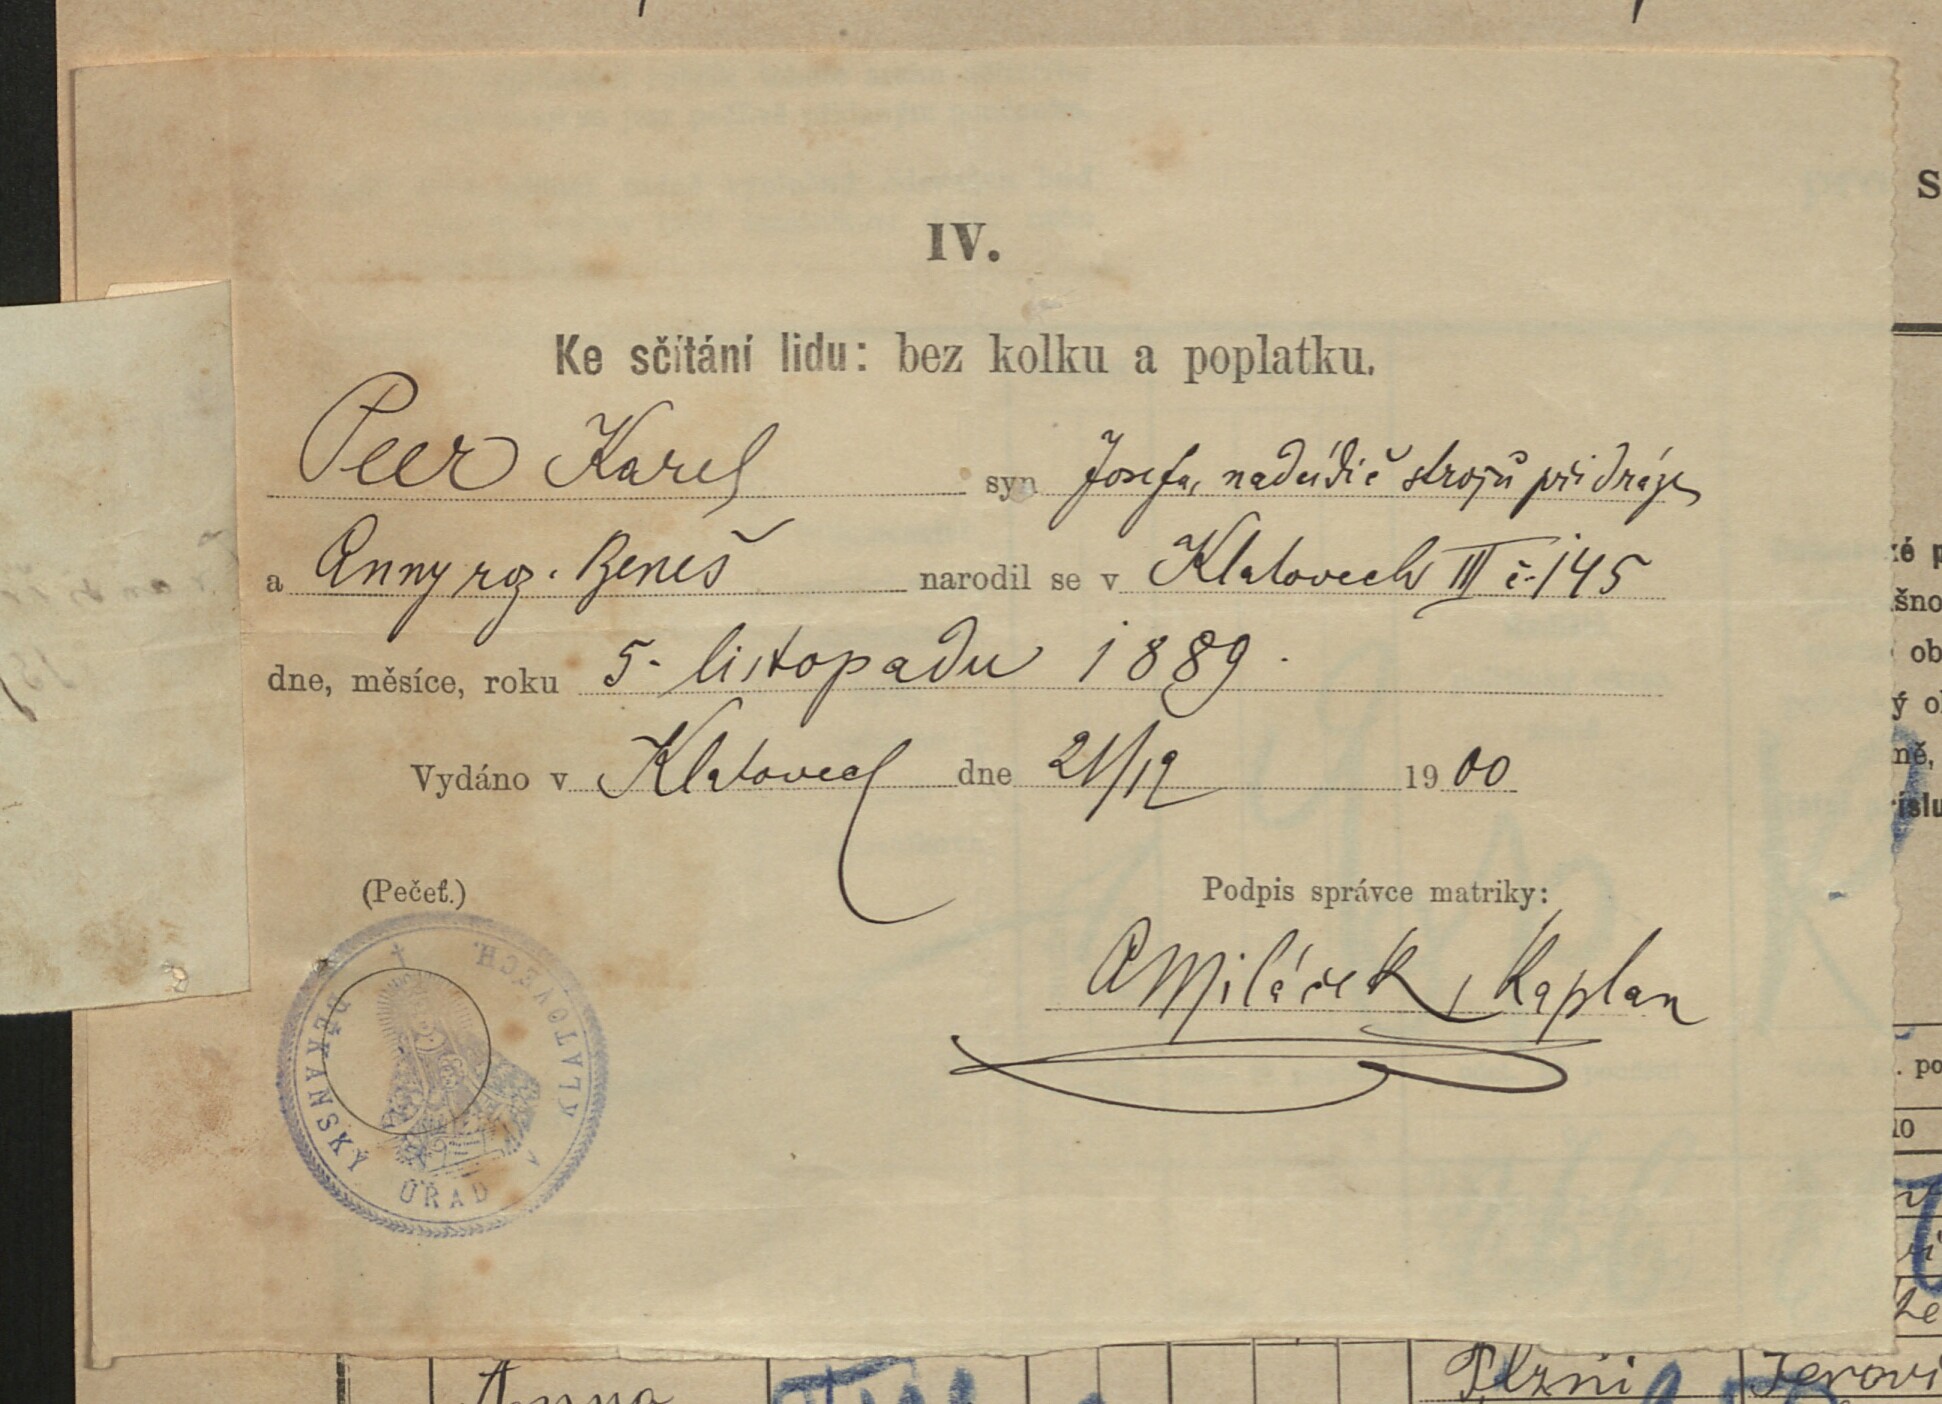 IV.
Ke sčítání lidu: bez kolku a poplatku.
Peer Karel syn Josefa, nadřidič strojů při dráze
a Anny roz. Beneš narodil se v Klatovech III č. 145
dne, měsíce, roku 5. listopadu 1889.
Vydáno v Klatovech dne 21/12 1900
(Pečeť.) Podpis správce matriky:
Miláček, Kaplan
DĚKANSKÝ ÚŘAD V KLATOVECH.
Anna
Plzni